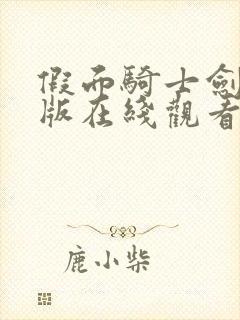 假而騎士劍
版在綫觀看
鹿小柴